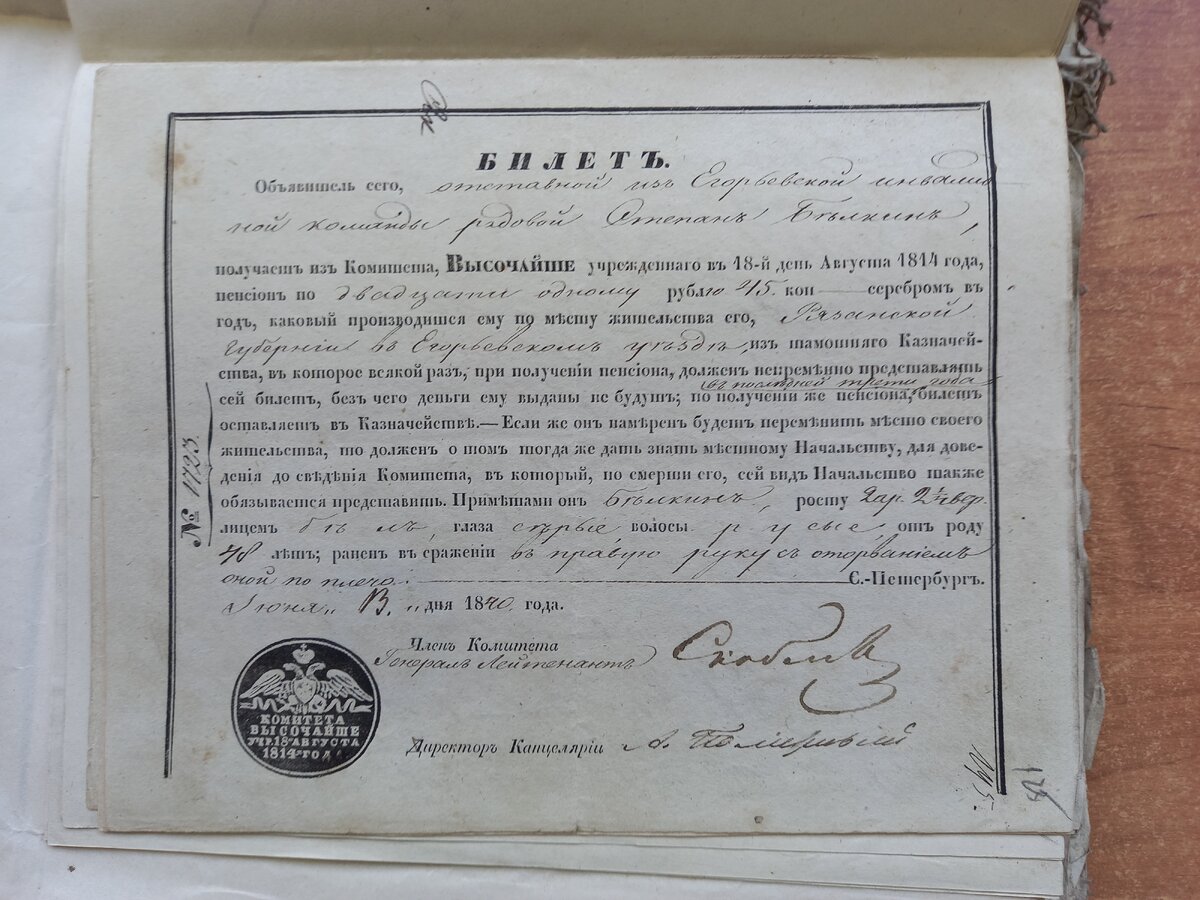 БИЛЕТЪ.
Объявитель сего, отставной изъ Егорьевской инвалид
ной команды рядовой Степанъ Бѣлкинъ,
получаетъ изъ Комитета, ВЫСОЧАЙШЕ учрежденнаго въ 18-й день Августа 1814 года,
пенсіонъ по двадцати одному рублю 45 коп серебромъ въ
годъ, каковый производится ему по мѣсту жительства его, Рязанской
Губерніи въ Егорьевскомъ уѣздѣ, изъ тамошняго Казначей-
ства, въ которое всякой разъ, при полученіи пенсіона, долженъ непремѣнно представлять
въ послѣдней трети года
сей билетъ, безъ чего деньги ему выданы не будутъ; по полученіи же пенсіона, билетъ
оставляетъ въ Казначействѣ.—Если же онъ намѣренъ будетъ перемѣнить мѣсто своего
жительства, то долженъ о томъ тогда же дать знать мѣстному Начальству, для дове-
денія до свѣденія Комитета, въ который, по смерти его, сей видъ Начальство также
обязывается представить. Примѣтами онъ Бѣлкинъ, росту 2 ар. 2½ вер.
лицемъ бѣлъ, глаза сѣрые волосы русые, отъ роду
48 лѣтъ; раненъ въ сраженіи въ правую руку съ оторваніемъ
оной по плечо. С.-Петербургъ.
Іюня „ „ дня 1840 года.
№ 1723.
Членъ Комитета
Генералъ Лейтенантъ Скобелевъ
Директоръ Канцеляріи А.
КОМИТЕТА
ВЫСОЧАЙШЕ
УЧР. 18 АВГУСТА
1814 ГОД